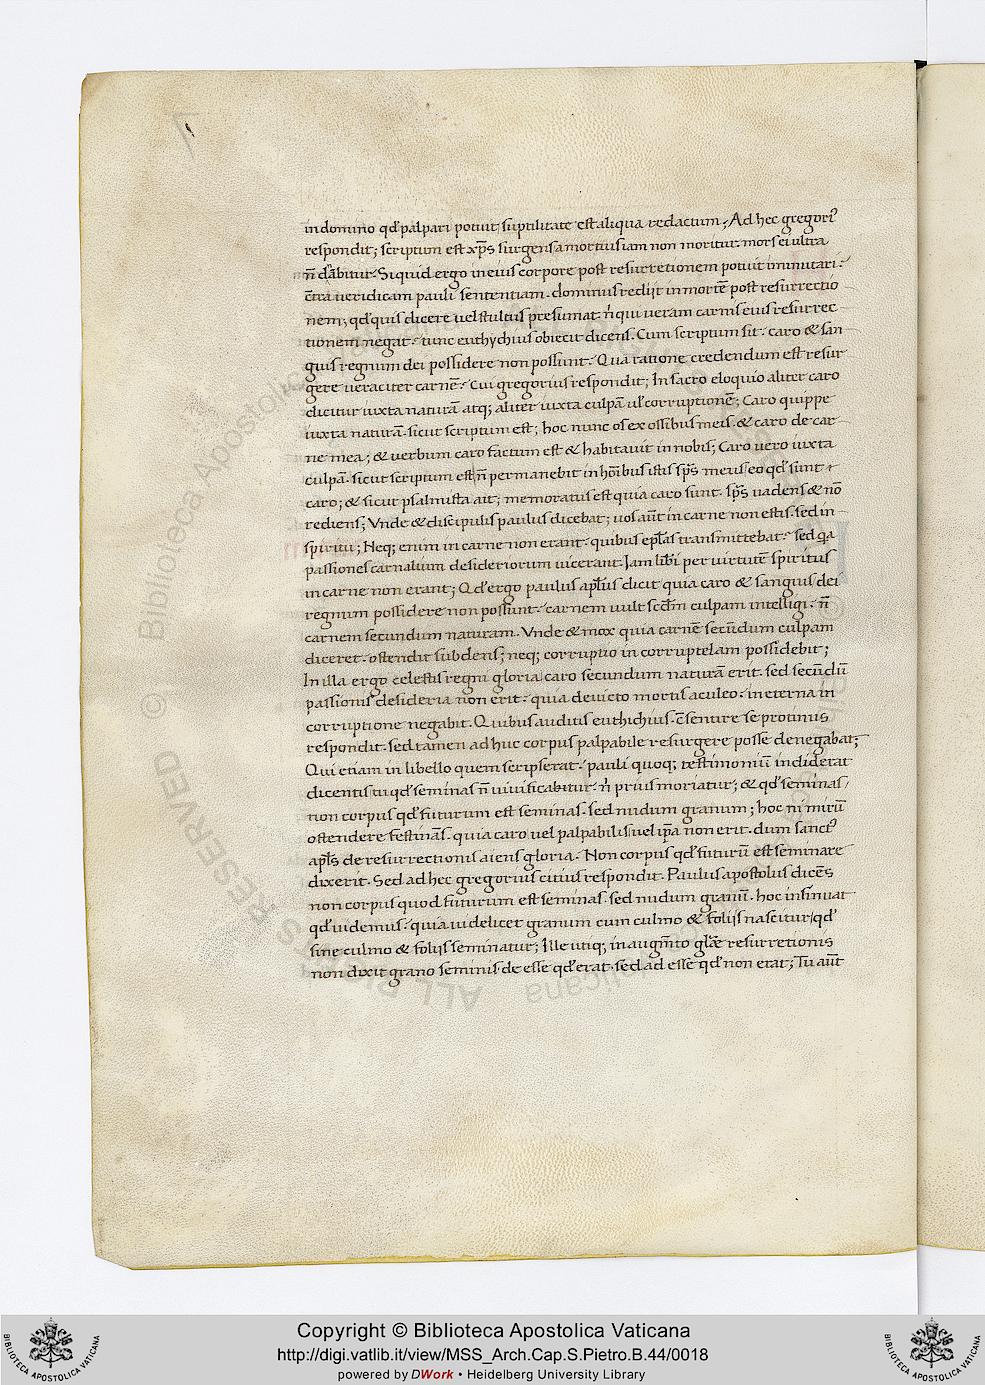 in domino qđ palpari potuit suptilitate est aliqua redactum; Ad hec gregori᷒
respondit; scriptum est xp̄s surgens a mortuis iam non moritur. mors ei ultra
n̄ dn̄abitur. Si quid ergo in eius corpore post resurretionem potuit immutari.
c̄tra ueridicam pauli sententiam. dominus redijt in mortē post resurrectio
nem; qđ quis dicere uel stultus presumat. n̄ qui ueram carnis eius resurrec
tionem negat. tunc euthychius obiecit dicens. Cum scriptum sit. caro & san
guis regnum dei possidere non possunt. Qua ratione credendum est resur
gere ueraciter carnē. Cui gregorius respondit; In sacro eloquio aliter caro
dicitur iuxta naturā atq; aliter iuxta culpā ul̄ corruptionē; Caro quippe
iuxta naturā. sicut scriptum est; hoc nunc os ex ossibus meis. & caro de car
ne mea; & uerbum caro factum est & habitauit in nobis; Caro uero iuxta
culpā. sicut scriptum est n̄ permanebit in hōibus istis sp̄s meus eo qđ sunt
caro; & sicut psalmista ait; memoratus est quia caro sunt. sp̄s uadens & nō
rediens; Vnde & discipulis paulus dicebat; uos aūt in carne non estis. sed in
spiritu; Neq; enim in carne non erant. quibus epl̄as transmittebat. sed qa
passiones carnalium desideriorum uicerant. Iam liberi per uirtutē spiritus
in carne non erant; Qđ ergo paulus apl̄us dicit quia caro & sanguis dei
regnum possidere non possunt. carnem uult scd̄m culpam intelligi. n̄
carnem secundum naturam. Vnde & mox quia carnē secūdum culpam
diceret. ostendit subdens; neq; corruptio in corruptelam possidebit;
In illa ergo celestis regni gloria caro secundum naturā erit. sed secūdū
passionis desideria non erit. quia deuicto mortis aculeo. in eterna in
corruptione negabit. Quibus auditus euthichius. c̄sentire se protinus
respondit. sed tamen adhuc corpus palpabile resurgere posse denegabat;
Qui etiam in libello quem scripserat. pauli quoq; testimoniū indiderat
dicentis tu qđ seminas n̄ uiuificabitur. n̄ prius moriatur; & qđ seminas
non corpus qđ futurum est seminas. sed nudum granum; hoc ni mirū
ostendere festinās. quia caro uel palpabilis uel ip̄a non erit. dum sanct᷒
apl̄s de resurrectionis aiens gloria. Non corpus qđ futurū est seminare
dixerit. Sed ad hec gregorius citius respondit. Paulus apostolus dicēs
non corpus quod futurum est seminas. sed nudum granū. hoc insinuat
qđ uidemus. quia uidelicet granum cum culmo & folijs nascitur qđ
sine culmo & folijs seminatur; Ille utiq; in augm̄to gl̄ae resurretionis
non dixit grano seminis de esse qđ erat. sed ad esse qđ non erat; Tu aūt
Copyright © Biblioteca Apostolica Vaticana
http://digi.vatlib.it/view/MSS_Arch.Cap.S.Pietro.B.44/0018
powered by DWork • Heidelberg University Library